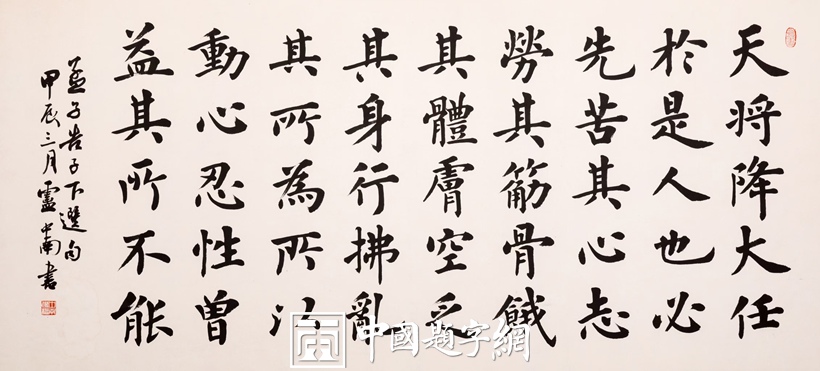 天将降大任
於是人也必
先苦其心志
勞其筋骨餓
其體膚空乏
其身行拂亂
其所為所以
動心忍性曾
益其所不能
孟子告子下選句
甲辰三月靈中南書
中國題字網